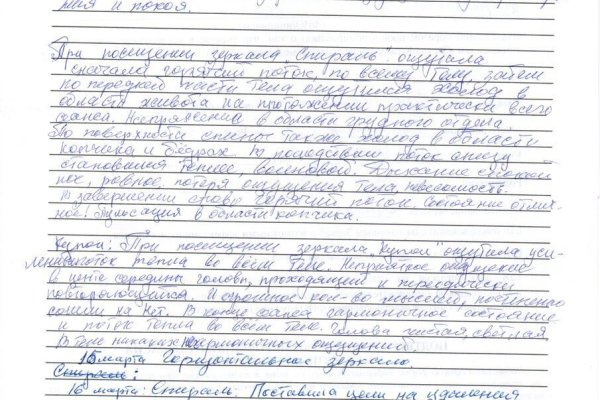 ния и покоя.
При посещении зеркала "Спираль" ощущала
сначала горячий поток, по всему телу, затем
по передней части тела ощущался холод в
области живота на протяжении практически всего
сеанса. Напряжение в области грудного отдела.
По поверхности спины также холод в области
копчика и бёдрах. В последствии поток снизу
становился теплее, волновой. Дыхание спокой
ное, ровное, потеря ощущения тела, невесомость.
В завершении снова горячий поток. Состояние отлич-
ное. Пульсация в области копчика.
Купол: При посещении зеркала "Купол" ощутила уси-
ленный поток тепла во всём теле. Неприятное ощущение
в центре середины головы, проходящий и периодически
повторяющийся. И огромное кол-во мыслей, постепенно
сошли на нет. В конце сеанса гармоничное состояние
и поток тепла во всём теле. Голова чистая, светлая,
В теле никаких негармоничных ощущений.
15 марта Горизонтальное зеркало.
Спираль:
16 марта: Спираль. Поставила цели на